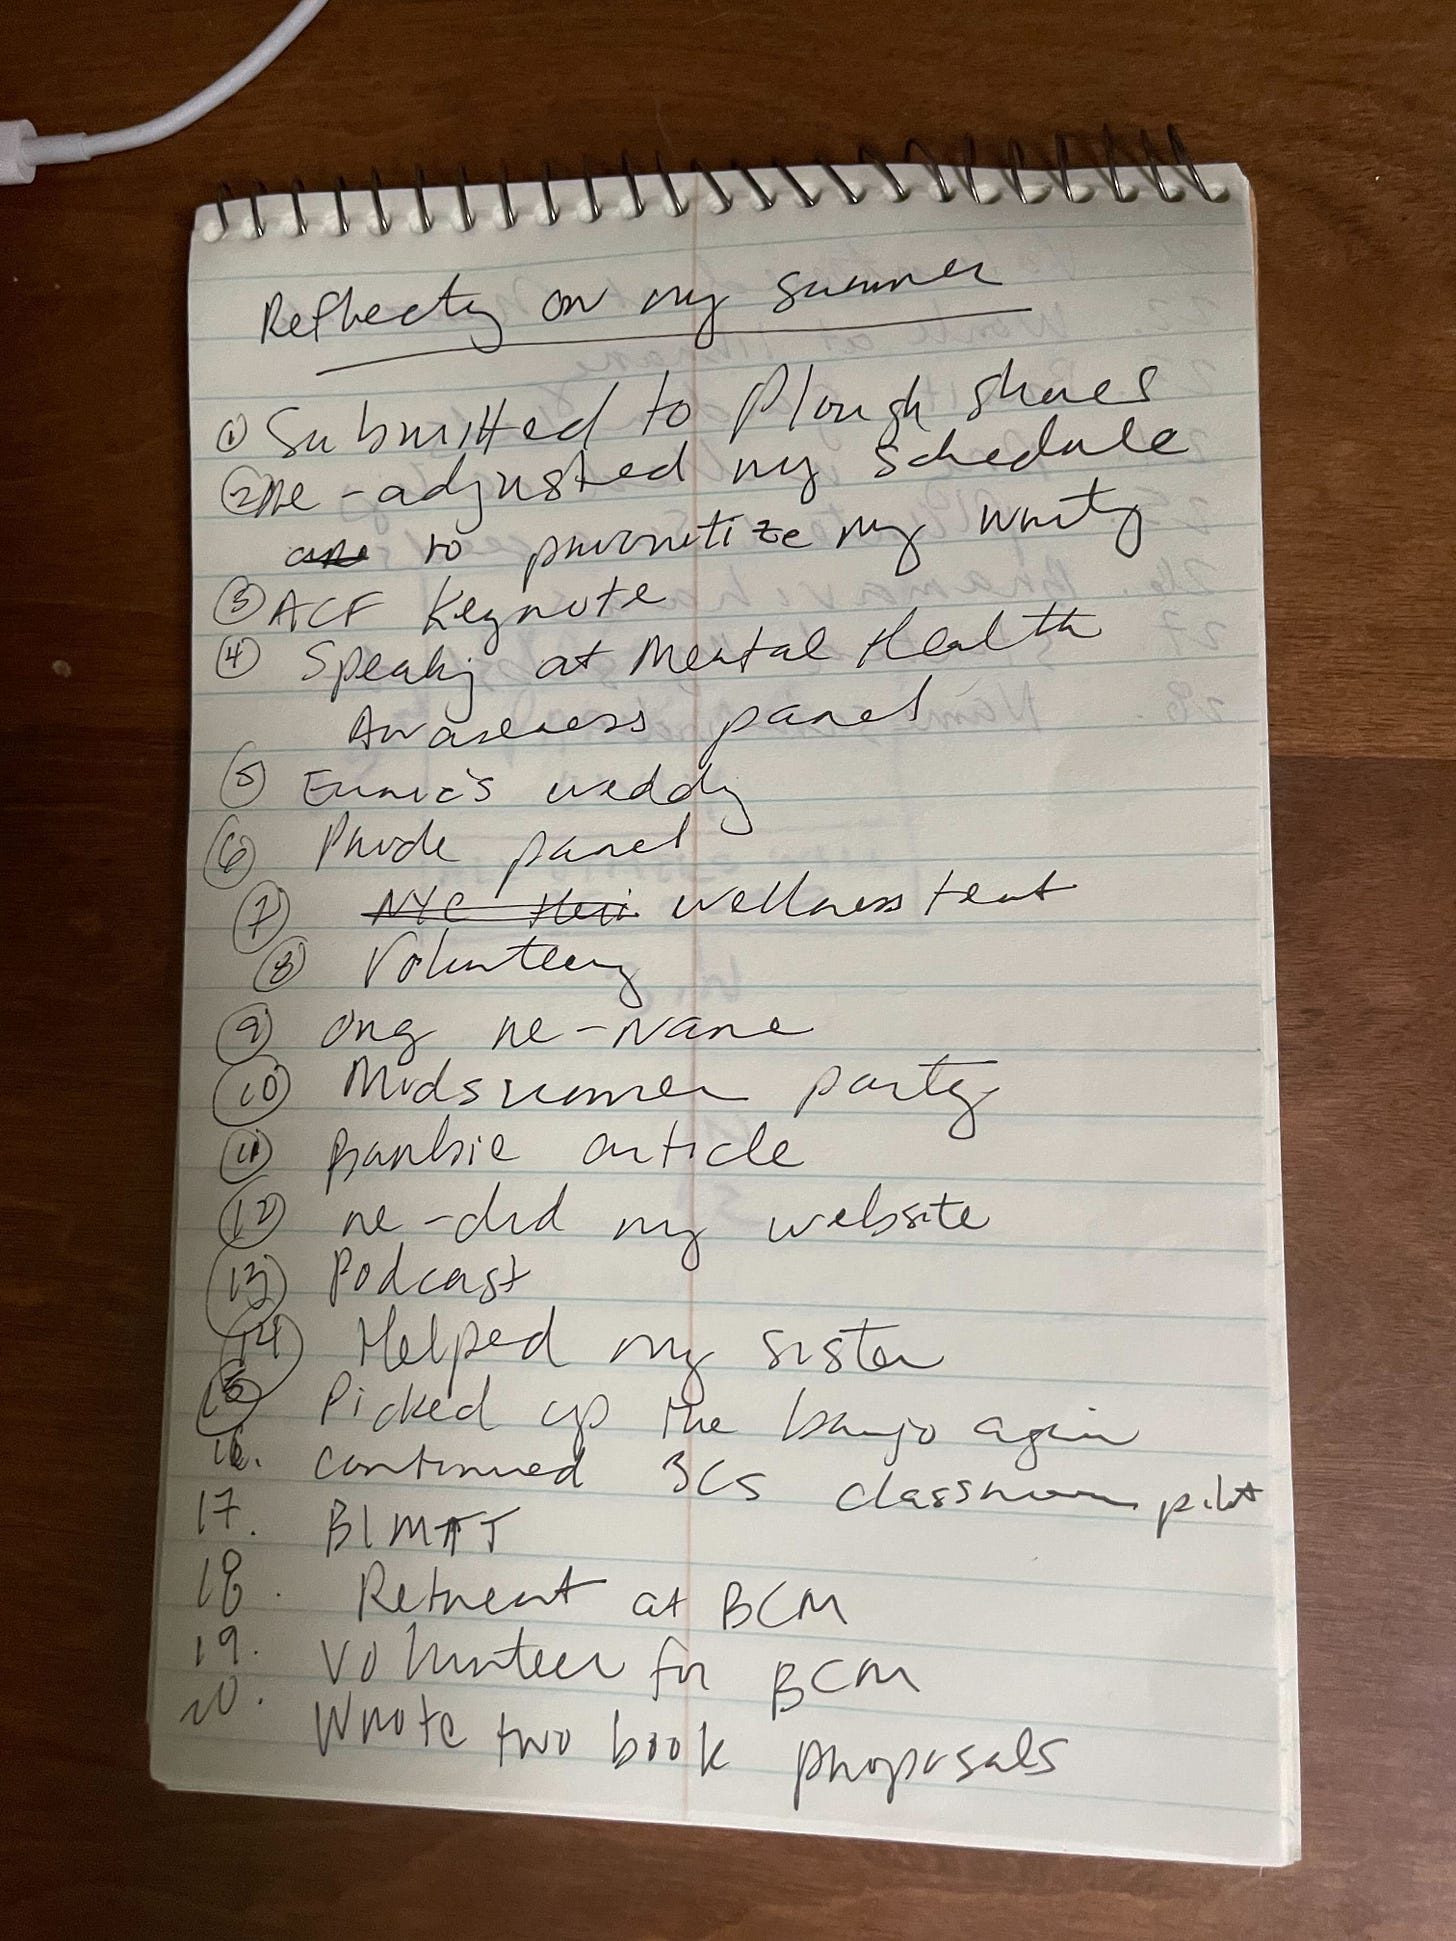 Reflecting on my summer
① Submitted to Ploughshares
② Re-adjusted my schedule
to prioritize my writing
③ ACF Keynote
④ Speaking at Mental Health
Awareness panel
⑤ wedding
⑥ Pride panel
⑦ NYC wellness tent
⑧ Volunteering
⑨ Org re-name
⑩ Midsummer party
⑪ Barbie article
⑫ re-did my website
⑬ Podcast
⑭ Helped my sister
⑮ Picked up the banjo again
16. continued classroom pilot
17.
18. Retreat at BCM
19. Volunteer for BCM
20. Wrote two book proposals